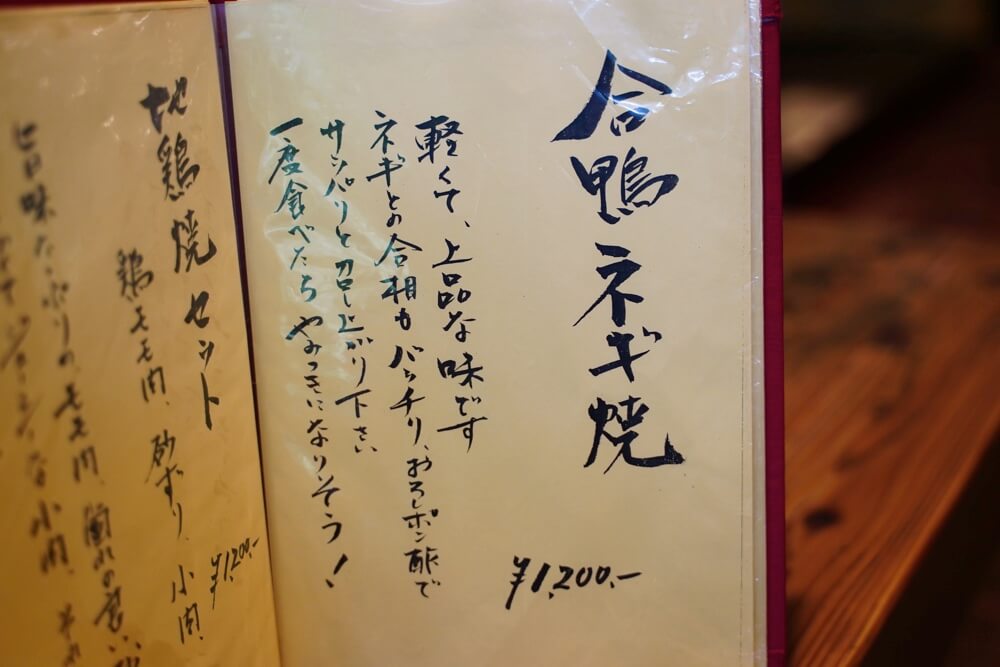 合鴨ネギ焼
軽くて、上品な味です
ネギとの合相もバッチリ、おろしポン酢で
サッパリと召し上がり下さい
一度食べたらやみつきになりそう！
¥1,200.-
地鶏焼セット
鶏モモ肉、砂ずり、小肉、
¥1,200.-
旨味たっぷりのモモ肉、